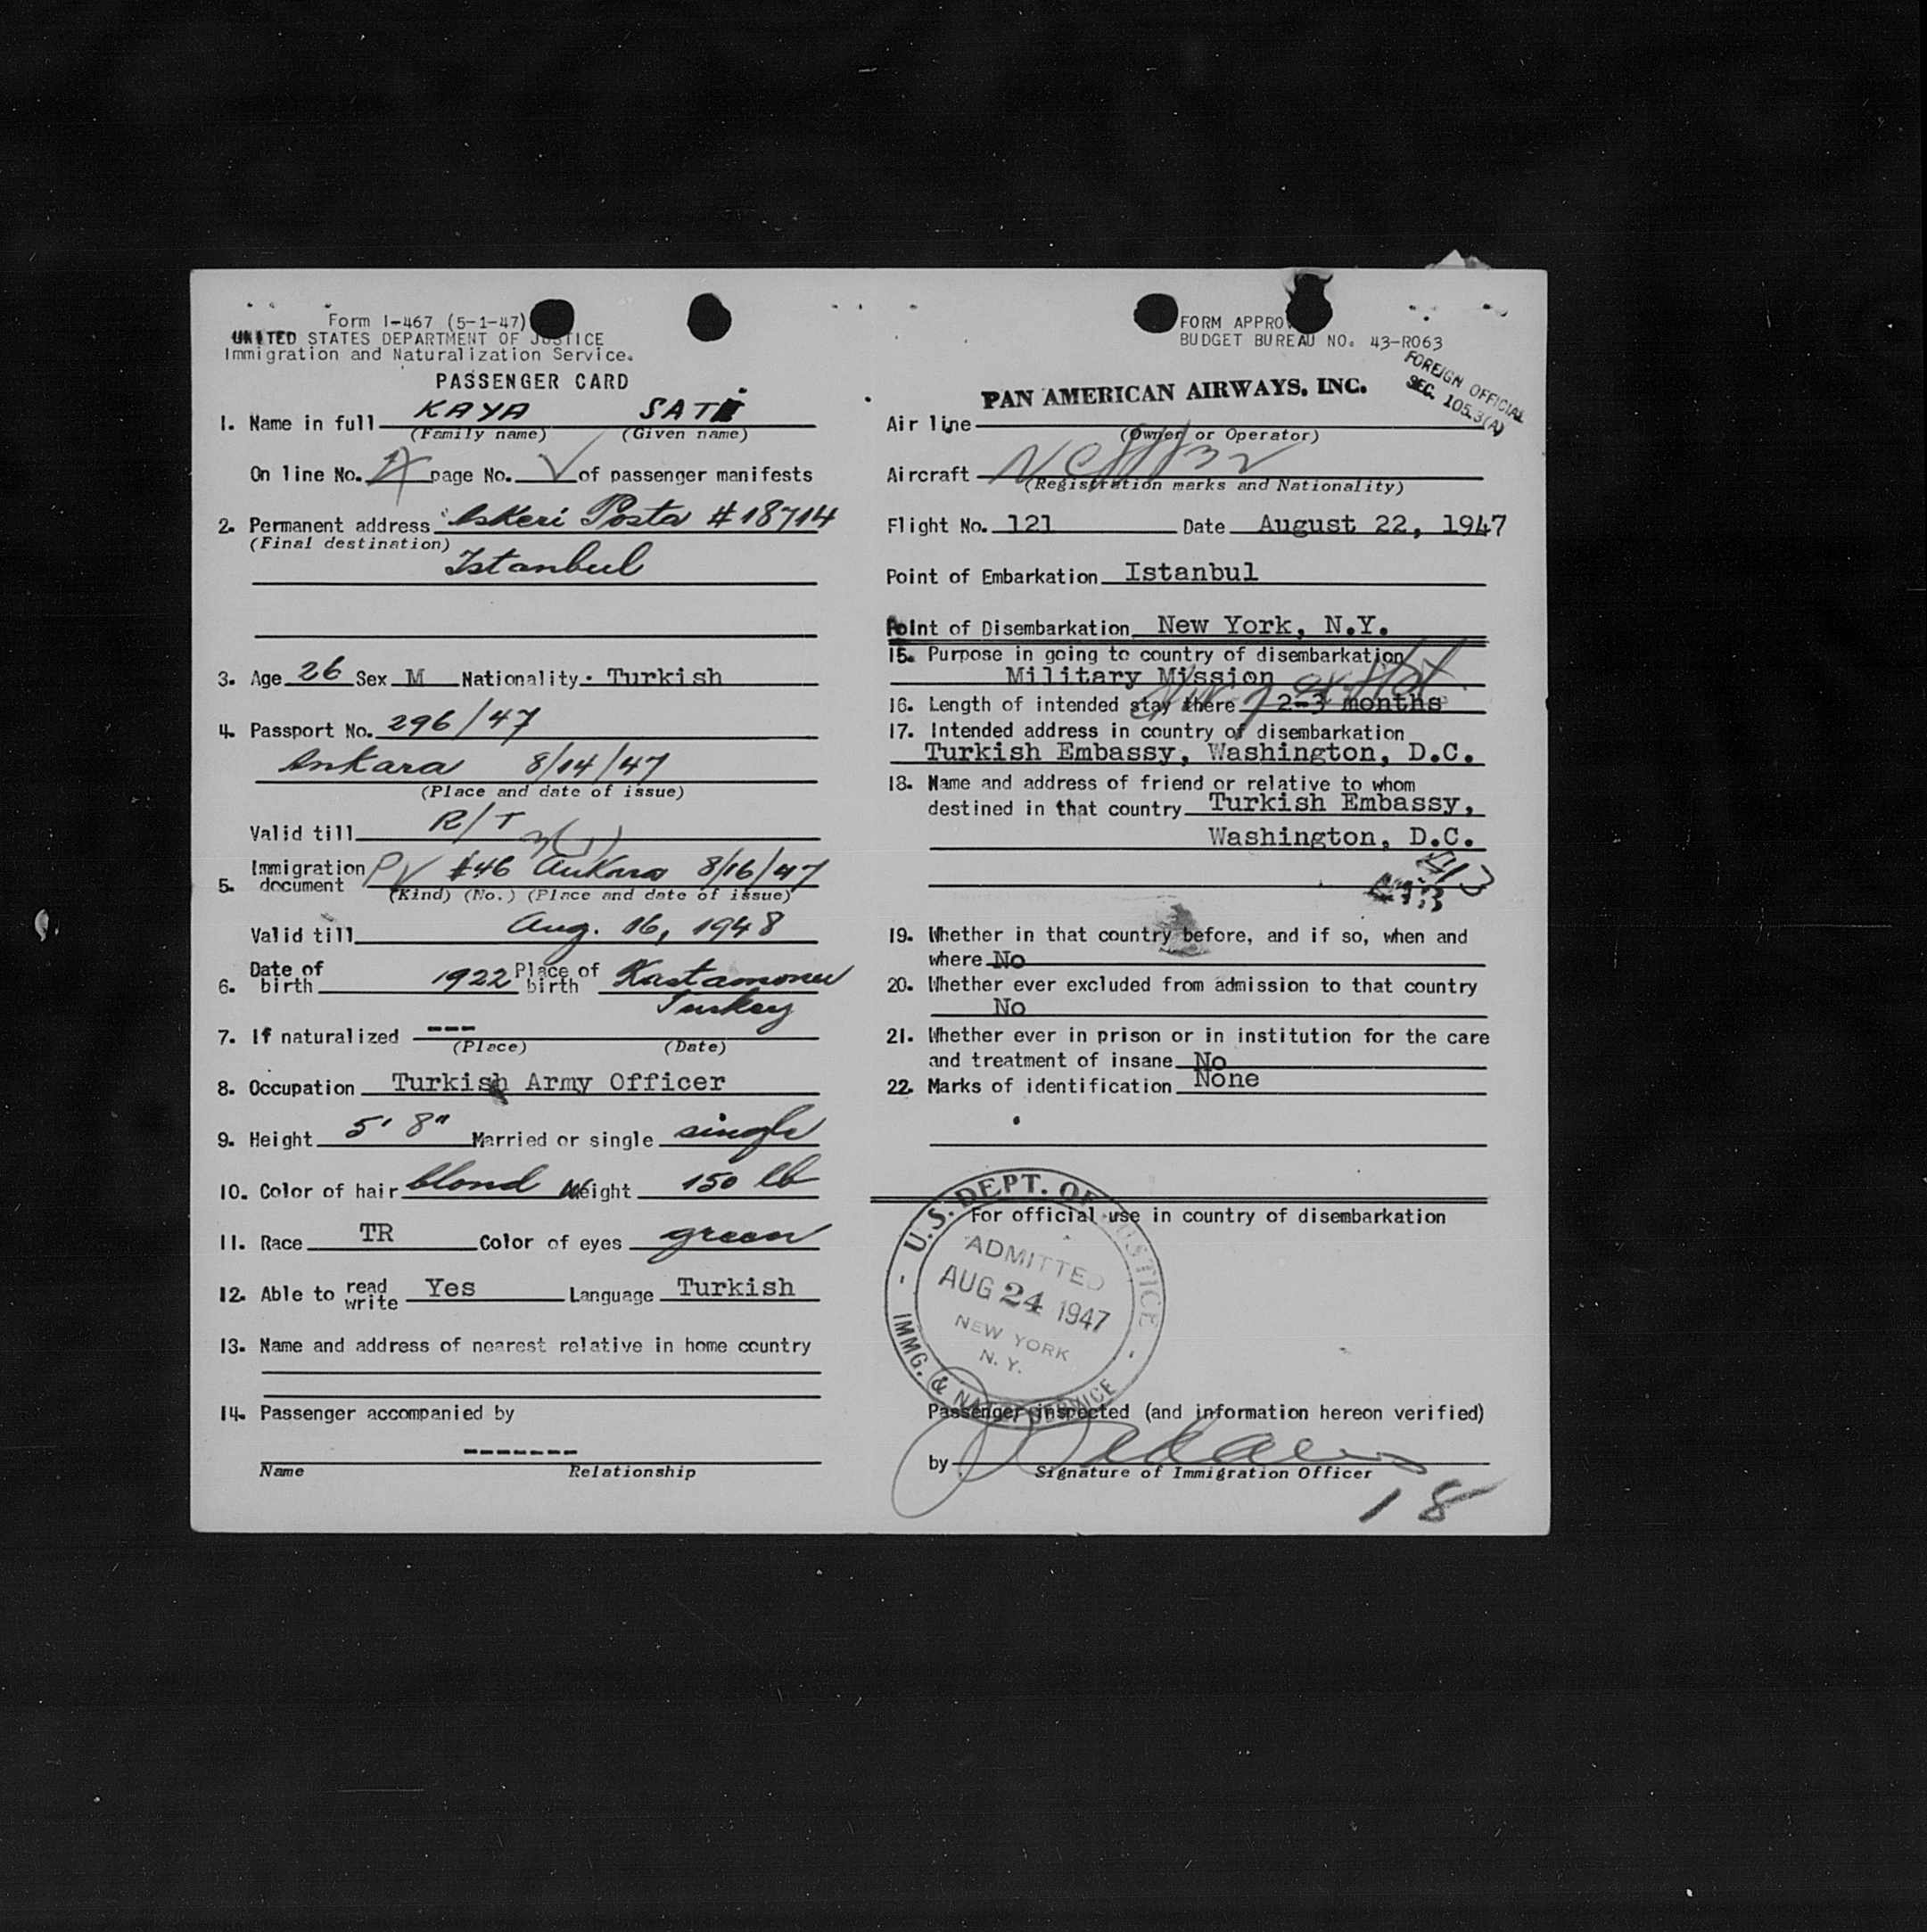 Form I-467 (5-1-47)
UNITED STATES DEPARTMENT OF JUSTICE
Immigration and Naturalization Service.
PASSENGER CARD
1. Name in full KAYA SATI
(Family name) (Given name)
On line No. page No. of passenger manifests
2. Permanent address Askeri Posta #18714
(Final destination)
Istanbul
3. Age 26 Sex M Nationality Turkish
4. Passport No. 296/47
Ankara 8/14/47
(Place and date of issue)
Valid till R/T
3(1)
5. Immigration document PV #46 Ankara 8/16/47
(Kind) (No.) (Place and date of issue)
Valid till Aug. 16, 1948
6. Date of birth 1922 Place of birth Kastamonu
Turkey
7. If naturalized ---
(Place) (Date)
8. Occupation Turkish Army Officer
9. Height 5' 8" Married or single single
10. Color of hair blond Weight 150 lb
11. Race TR Color of eyes green
12. Able to read write Yes Language Turkish
13. Name and address of nearest relative in home country
14. Passenger accompanied by
-------
Name Relationship
FORM APPROV
BUDGET BUREAU NO. 43-R063
FOREIGN OFFICIAL
SEC. 105.3(A)
PAN AMERICAN AIRWAYS, INC.
Air line
(Owner or Operator)
Aircraft
(Registration marks and Nationality)
Flight No. 121 Date August 22, 1947
Point of Embarkation Istanbul
Point of Disembarkation New York, N.Y.
15. Purpose in going to country of disembarkation
Military Mission
16. Length of intended stay there 2-3 months
17. Intended address in country of disembarkation
Turkish Embassy, Washington, D.C.
18. Name and address of friend or relative to whom
destined in that country Turkish Embassy,
Washington, D.C.
19. Whether in that country before, and if so, when and
where No
20. Whether ever excluded from admission to that country
No
21. Whether ever in prison or in institution for the care
and treatment of insane No
22. Marks of identification None
For official use in country of disembarkation
U.S. DEPT. OF JUSTICE
ADMITTED
AUG 24 1947
NEW YORK
N. Y.
IMMG. & NATZ. SERVICE
Passenger inspected (and information hereon verified)
by
Signature of Immigration Officer
18